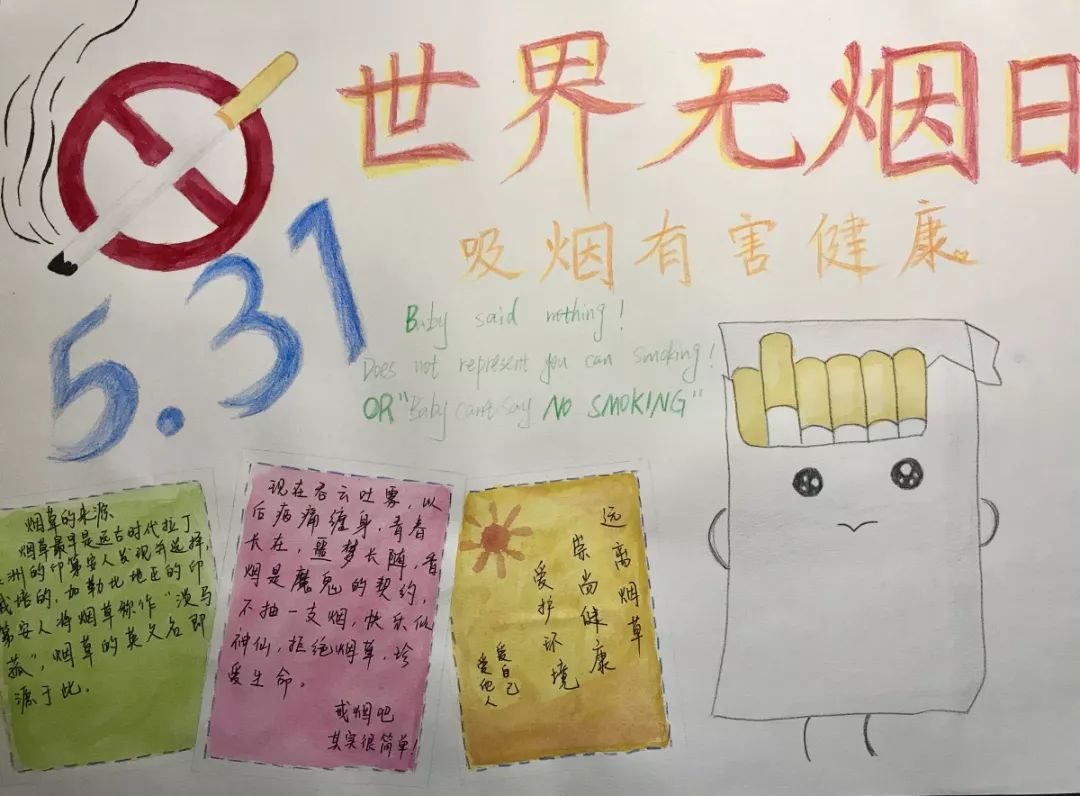 世界无烟日
吸烟有害健康
5.31
Baby said nothing!
Does not represent you can smoking!
OR "Baby can't say NO SMOKING"
烟草的来源
烟草最早是远古时代拉丁
洲的印第安人发现并选择,
栽培的,加勒比地区的印
第安人将烟草称作"淡马
菰",烟草的英文名即
源于此.
现在吞云吐雾,以
后病痛缠身,青春
长在,噩梦长随,香
烟是魔鬼的契约,
不抽一支烟,快乐似
神仙,拒绝烟草,珍
爱生命。
戒烟吧
其实很简单!
远离烟草
崇尚健康
爱护环境
爱自己
爱他人